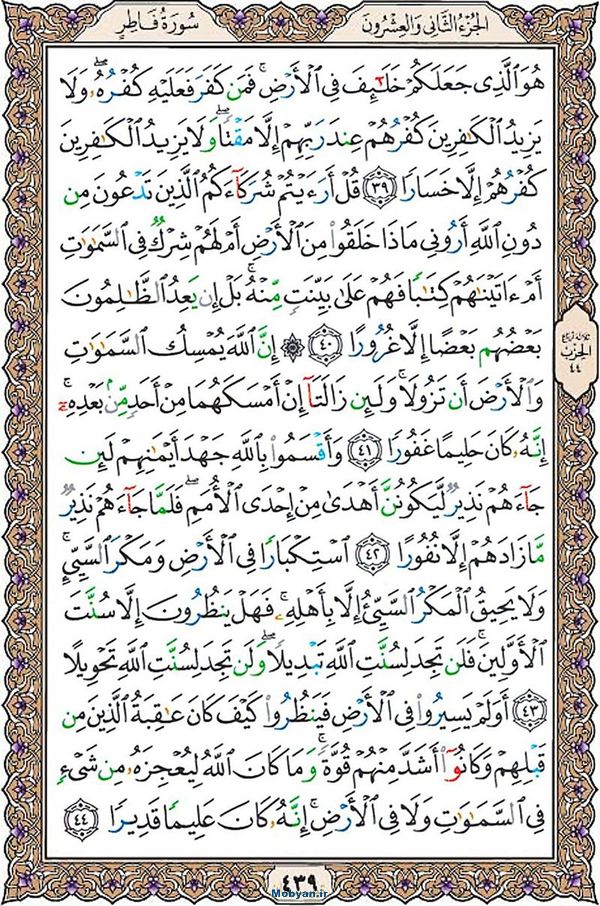 الجزء الثاني والعشرون
سورة فاطر
هُوَ ٱلَّذِى جَعَلَكُمْ خَلَـٰٓئِفَ فِى ٱلْأَرْضِ ۚ فَمَن كَفَرَ فَعَلَيْهِ كُفْرُهُۥ ۖ وَلَا
يَزِيدُ ٱلْكَـٰفِرِينَ كُفْرُهُمْ عِندَ رَبِّهِمْ إِلَّا مَقْتًا ۖ وَلَا يَزِيدُ ٱلْكَـٰفِرِينَ
كُفْرُهُمْ إِلَّا خَسَارًا ٣٩ قُلْ أَرَءَيْتُمْ شُرَكَآءَكُمُ ٱلَّذِينَ تَدْعُونَ مِن
دُونِ ٱللَّهِ أَرُونِى مَاذَا خَلَقُوا۟ مِنَ ٱلْأَرْضِ أَمْ لَهُمْ شِرْكٌ فِى ٱلسَّمَـٰوَٰتِ
أَمْ ءَاتَيْنَـٰهُمْ كِتَـٰبًا فَهُمْ عَلَىٰ بَيِّنَتٍ مِّنْهُ ۚ بَلْ إِن يَعِدُ ٱلظَّـٰلِمُونَ
بَعْضُهُم بَعْضًا إِلَّا غُرُورًا ٤٠ ۞ إِنَّ ٱللَّهَ يُمْسِكُ ٱلسَّمَـٰوَٰتِ
وَٱلْأَرْضَ أَن تَزُولَا ۚ وَلَئِن زَالَتَآ إِنْ أَمْسَكَهُمَا مِنْ أَحَدٍ مِّنۢ بَعْدِهِۦٓ ۚ
إِنَّهُۥ كَانَ حَلِيمًا غَفُورًا ٤١ وَأَقْسَمُوا۟ بِٱللَّهِ جَهْدَ أَيْمَـٰنِهِمْ لَئِن
جَآءَهُمْ نَذِيرٌ لَّيَكُونُنَّ أَهْدَىٰ مِنْ إِحْدَى ٱلْأُمَمِ ۖ فَلَمَّا جَآءَهُمْ نَذِيرٌ
مَّا زَادَهُمْ إِلَّا نُفُورًا ٤٢ ٱسْتِكْبَارًا فِى ٱلْأَرْضِ وَمَكْرَ ٱلسَّيِّئِ ۚ
وَلَا يَحِيقُ ٱلْمَكْرُ ٱلسَّيِّئُ إِلَّا بِأَهْلِهِۦ ۚ فَهَلْ يَنظُرُونَ إِلَّا سُنَّتَ
ٱلْأَوَّلِينَ ۚ فَلَن تَجِدَ لِسُنَّتِ ٱللَّهِ تَبْدِيلًا ۖ وَلَن تَجِدَ لِسُنَّتِ ٱللَّهِ تَحْوِيلًا
٤٣ أَوَلَمْ يَسِيرُوا۟ فِى ٱلْأَرْضِ فَيَنظُرُوا۟ كَيْفَ كَانَ عَـٰقِبَةُ ٱلَّذِينَ مِن
قَبْلِهِمْ وَكَانُوٓا۟ أَشَدَّ مِنْهُمْ قُوَّةً ۚ وَمَا كَانَ ٱللَّهُ لِيُعْجِزَهُۥ مِن شَىْءٍ
فِى ٱلسَّمَـٰوَٰتِ وَلَا فِى ٱلْأَرْضِ ۚ إِنَّهُۥ كَانَ عَلِيمًا قَدِيرًا ٤٤
ثلاثة أرباع
الحزب
٤٤
٤٣٩
Mobyan.ir